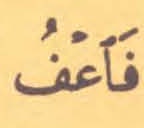 فَٱعۡفُ